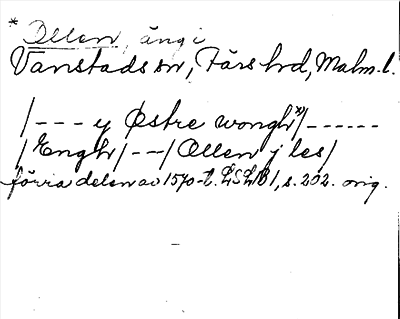 * Ollen, äng i
Vanstads sn, Färs hrd, Malm. l.
/--- y Østre wongh *)/------
/Enghr/--/Ollen j les/
förra delen av 1570-t. LSLB 1, s. 202. orig.